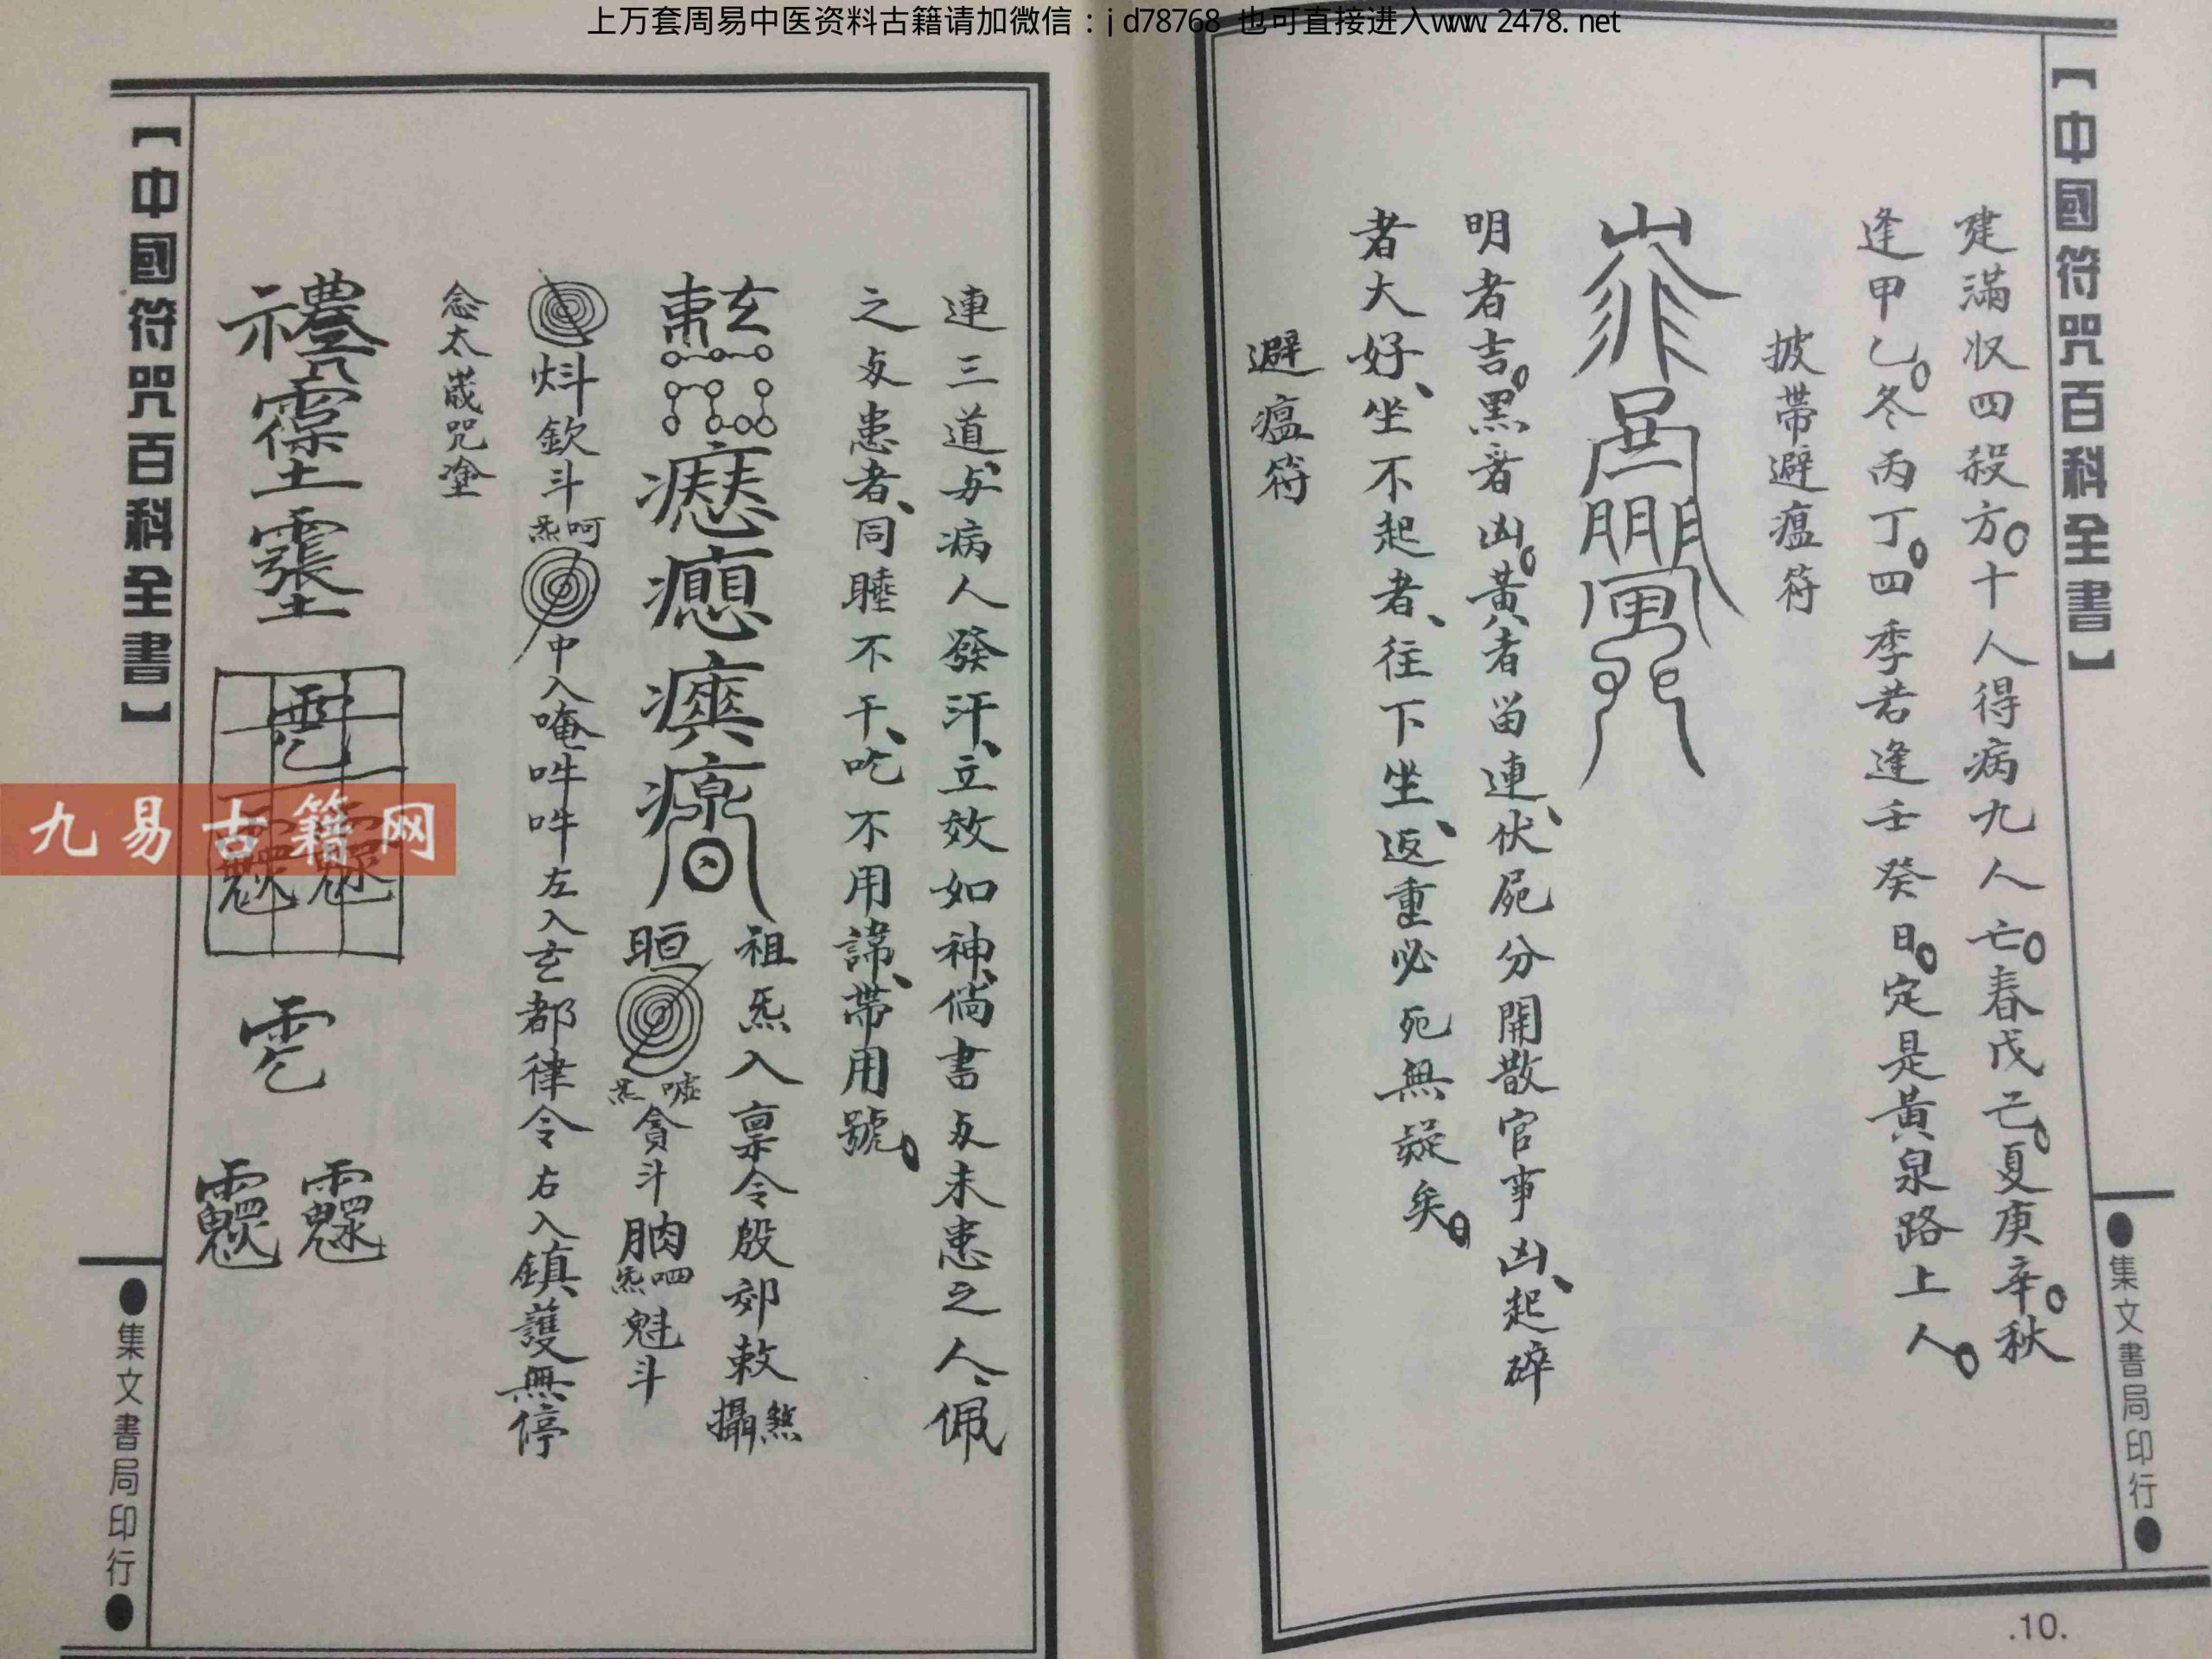 上万套周易中医资料古籍请加微信：jd78768 也可直接进入www.2478.net
【中國符咒百科全書】
●集文書局印行●
建滿収四殺方。十人得病九人亡。春戊己。夏庚辛。秋
逢甲乙。冬丙丁。四季若逢壬癸日。定是黃泉路上人。
披帶避瘟符
明者吉。黑者凶。黃者留連、伏屍分開散官事凶、起碎
者大好、坐不起者、往下坐、返重必死無疑矣。
避瘟符
.10.
連三道、与病人發汗、立效如神、倘書与未患之人、佩
之与患者、同睡不干、吃不用諱、帶用號。
祖炁入稟令殷郊敕攝煞
噓炁貪斗
呬炁魁斗
欽斗呵炁
中入唵吽吽左入玄都律令右入鎮護無停
念太歲咒塗
【中國符咒百科全書】
●集文書局印行●
九易古籍网